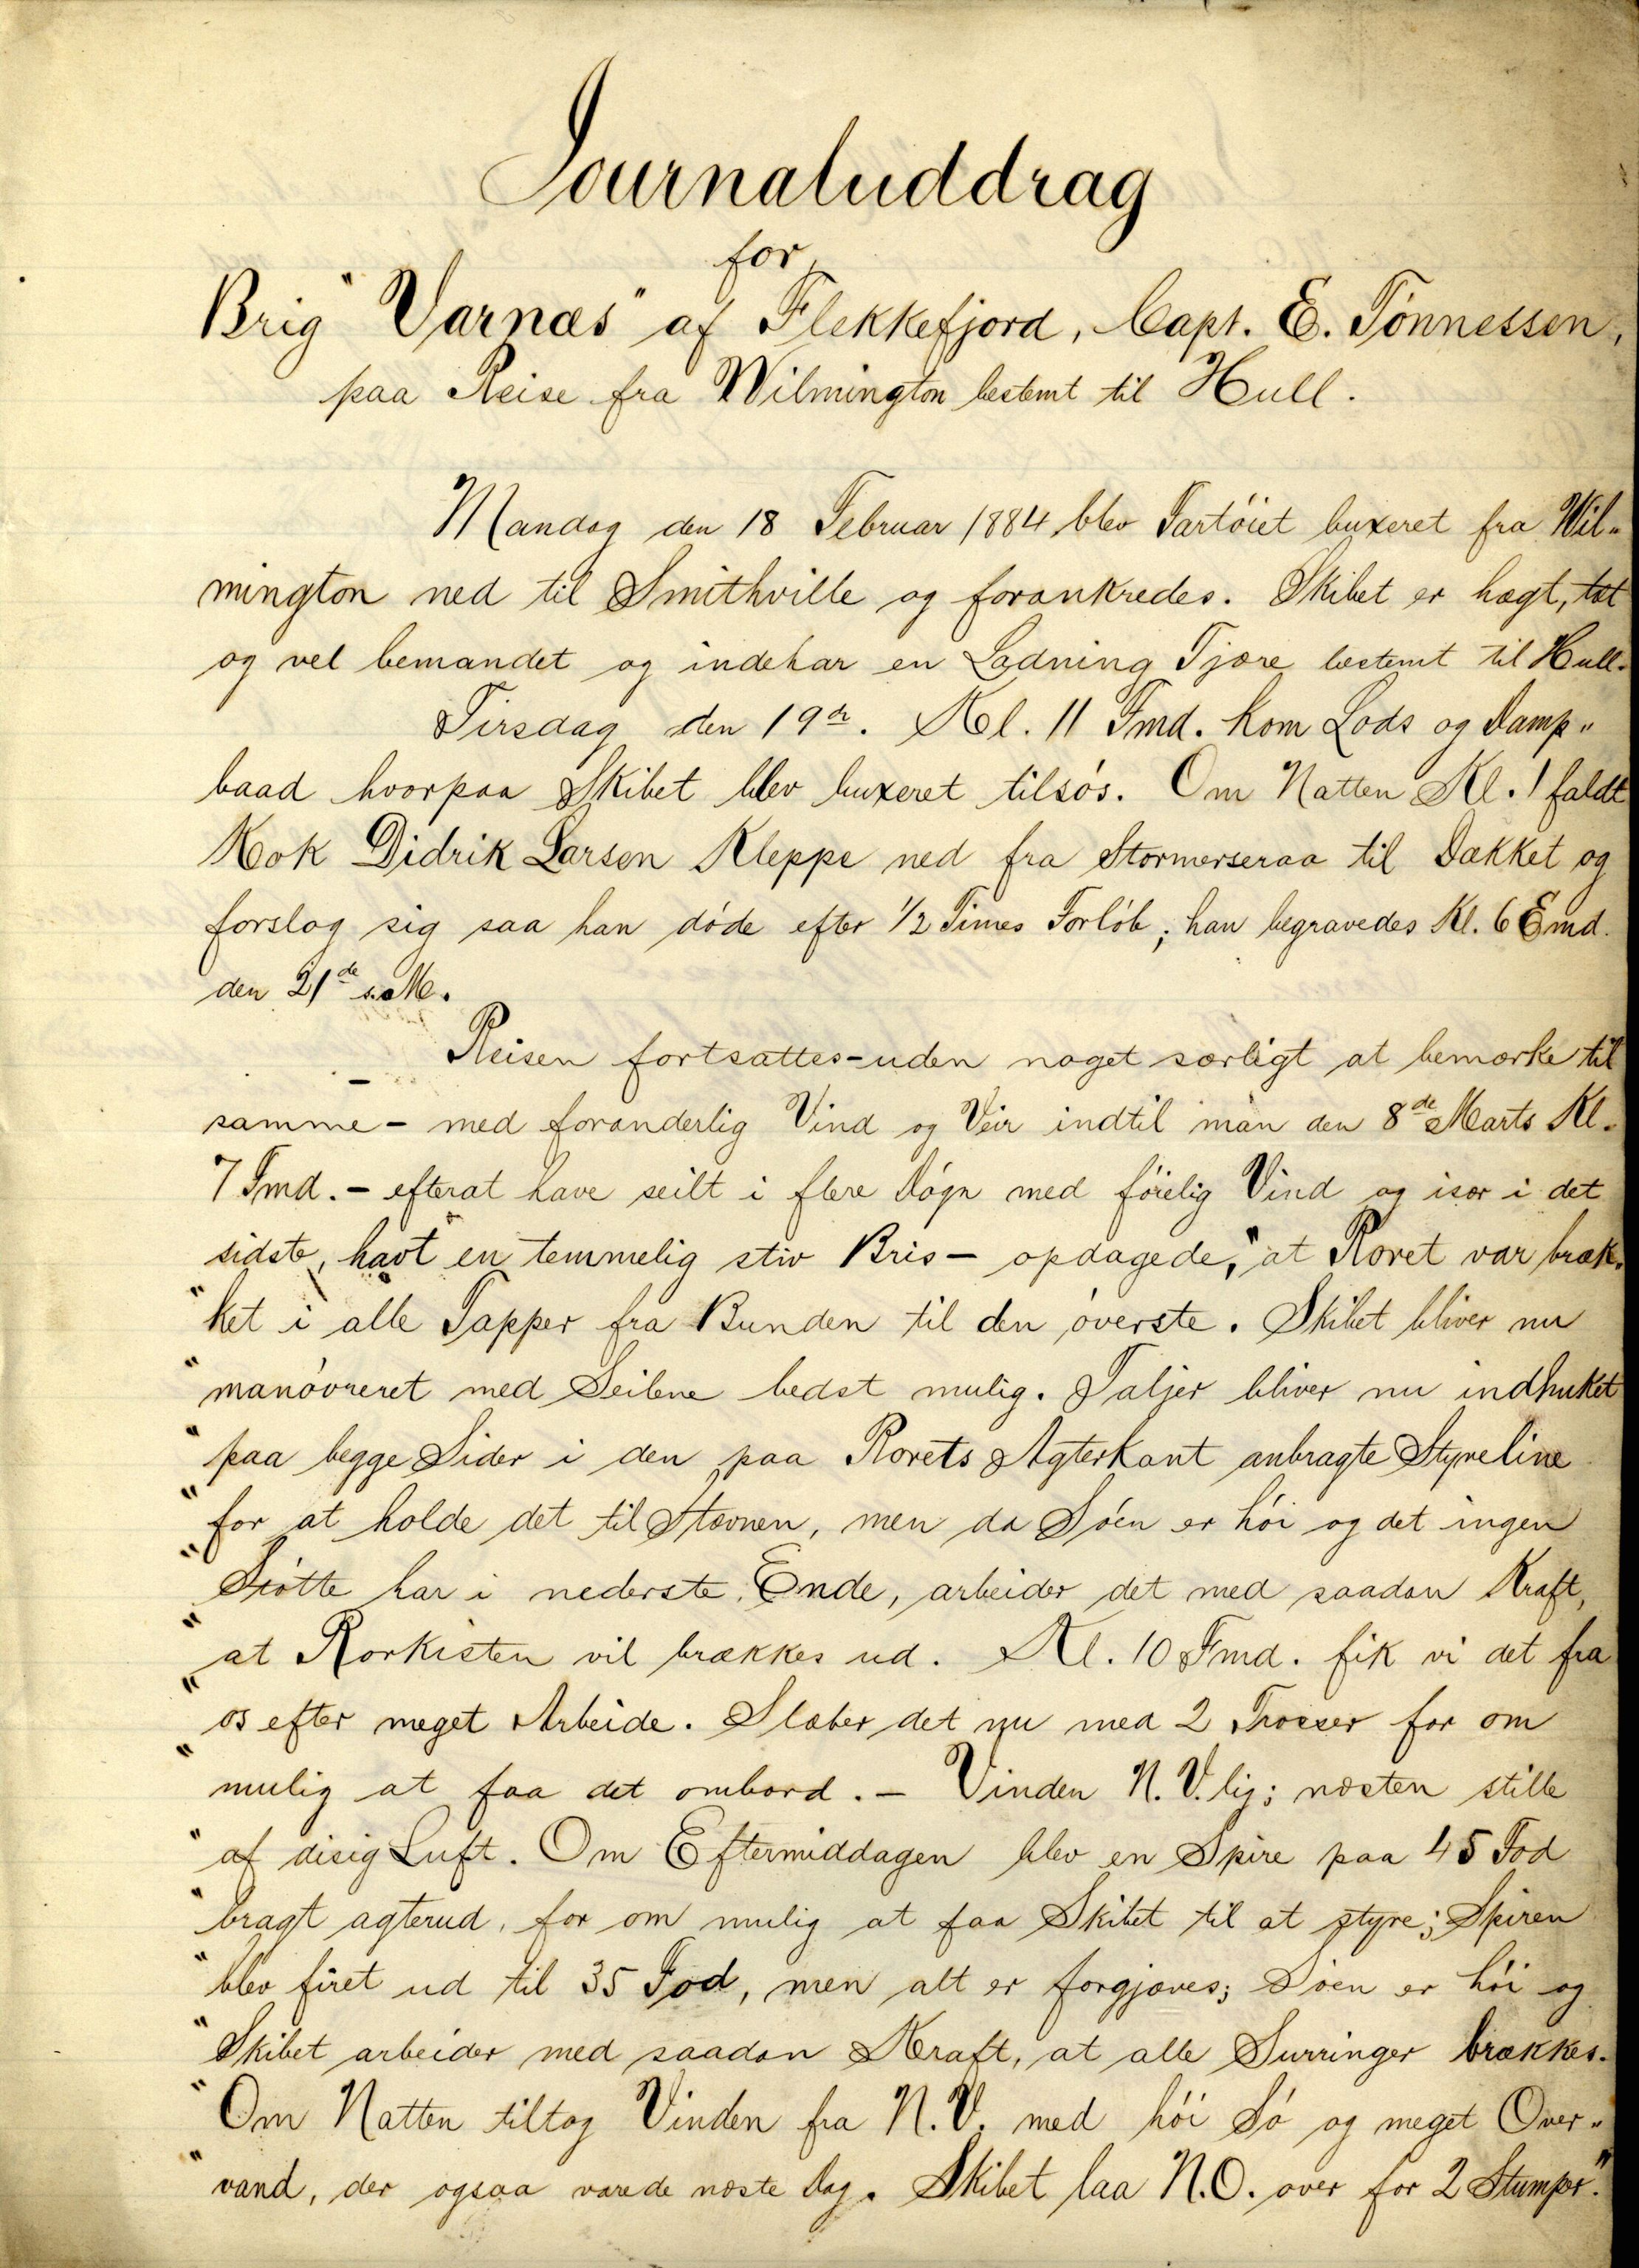 Journaluddrag
for
Brig "Varnæs" af Flekkefjord, Capt. E. Tönnessen,
paa Reise fra Wilmington bestemt til Hull.
Mandag den 18 Februar 1884 blev Fartöiet buxeret fra Wil-
mington ned til Smithville og forankredes. Skibet er lægt, tæt
og vel bemandet og indehar en Ladning Tjære bestemt til Hull.
Tirsdag den 19de. Kl. 11 Fmd. kom Lods og Damp-
baad hvorpaa Skibet blev buxeret tilsös. Om Natten Kl. 1 faldt
Kok Didrik Larsen Kleppe ned fra Stormerseraa til Dækket og
forslog sig saa han döde efter 1/2 Times Forlöb; han begravedes Kl. 6 Emd.
den 21de s. M.
Reisen fortsattes - uden noget særligt at bemærke til
samme - med foranderlig Vind og Veir indtil man den 8de Marts Kl.
7 Fmd. - efterat have seilt i flere Dögn med föielig Vind og især i det
sidste, havt en temmelig stiv Bris - opdagede, "at Roret var bræk-
"ket i alle Tapper fra Bunden til den överste. Skibet bliver nu
"manövreret med Seilene bedst mulig. Taljer bliver nu indhuket
"paa begge Sider i den paa Rorets Agterkant anbragte Styreline
"for at holde det til Stævnen, men da Söen er höi og det ingen
"Stötte har i nederste Ende, arbeider det med saadan Kraft,
"at Rorkisten vil brækkes ud. Kl. 10 Fmd. fik vi det fra
"os efter meget Arbeide. Slæber det nu med 2 Trosser for om
"mulig at faa det ombord. - Vinden N.V.lig; næsten stille
"af disig Luft. Om Eftermiddagen blev en Spire paa 45 Fod
"bragt agterud, for om mulig at faa Skibet til at styre; Spiren
"blev firet ud til 35 Fod, men alt er forgjæves; Söen er höi og
"Skibet arbeider med saadan Kraft, at alle Surringer brækkes.
"Om Natten tiltog Vinden fra N.V. med höi Sö og meget Over-
"vand, der ogsaa varede næste Dag. Skibet laa N.O. over for 2 Stumper."